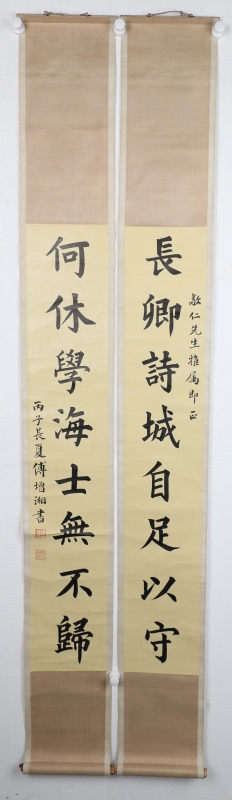 長卿詩城自足以守
敬仁先生雅屬即正
何休學海士無不歸
丙子長夏傅增湘書